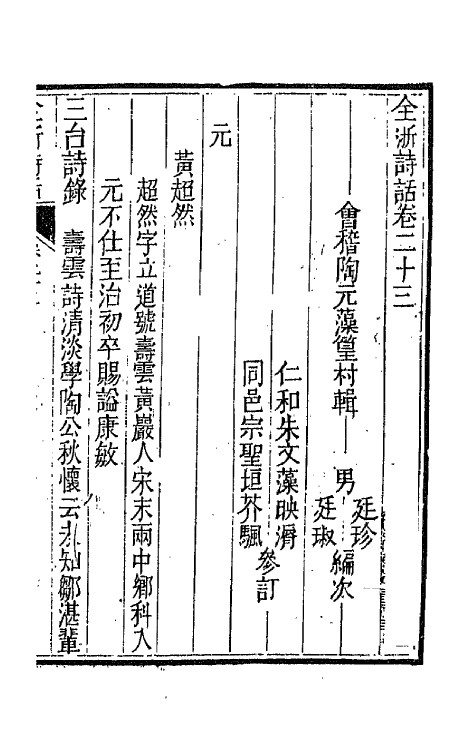 全浙詩話卷二十三
會稽陶元藻篁村輯 男 廷珍 廷琡 編次
仁和朱文藻映漘
同邑宗聖垣芥颿 參訂
元
黃超然
超然字立道號壽雲黃巖人宋末兩中鄉科入
元不仕至治初卒賜謚康敏
三台詩錄 壽雲詩清淡學陶公秋懷云 知鄒湛輩